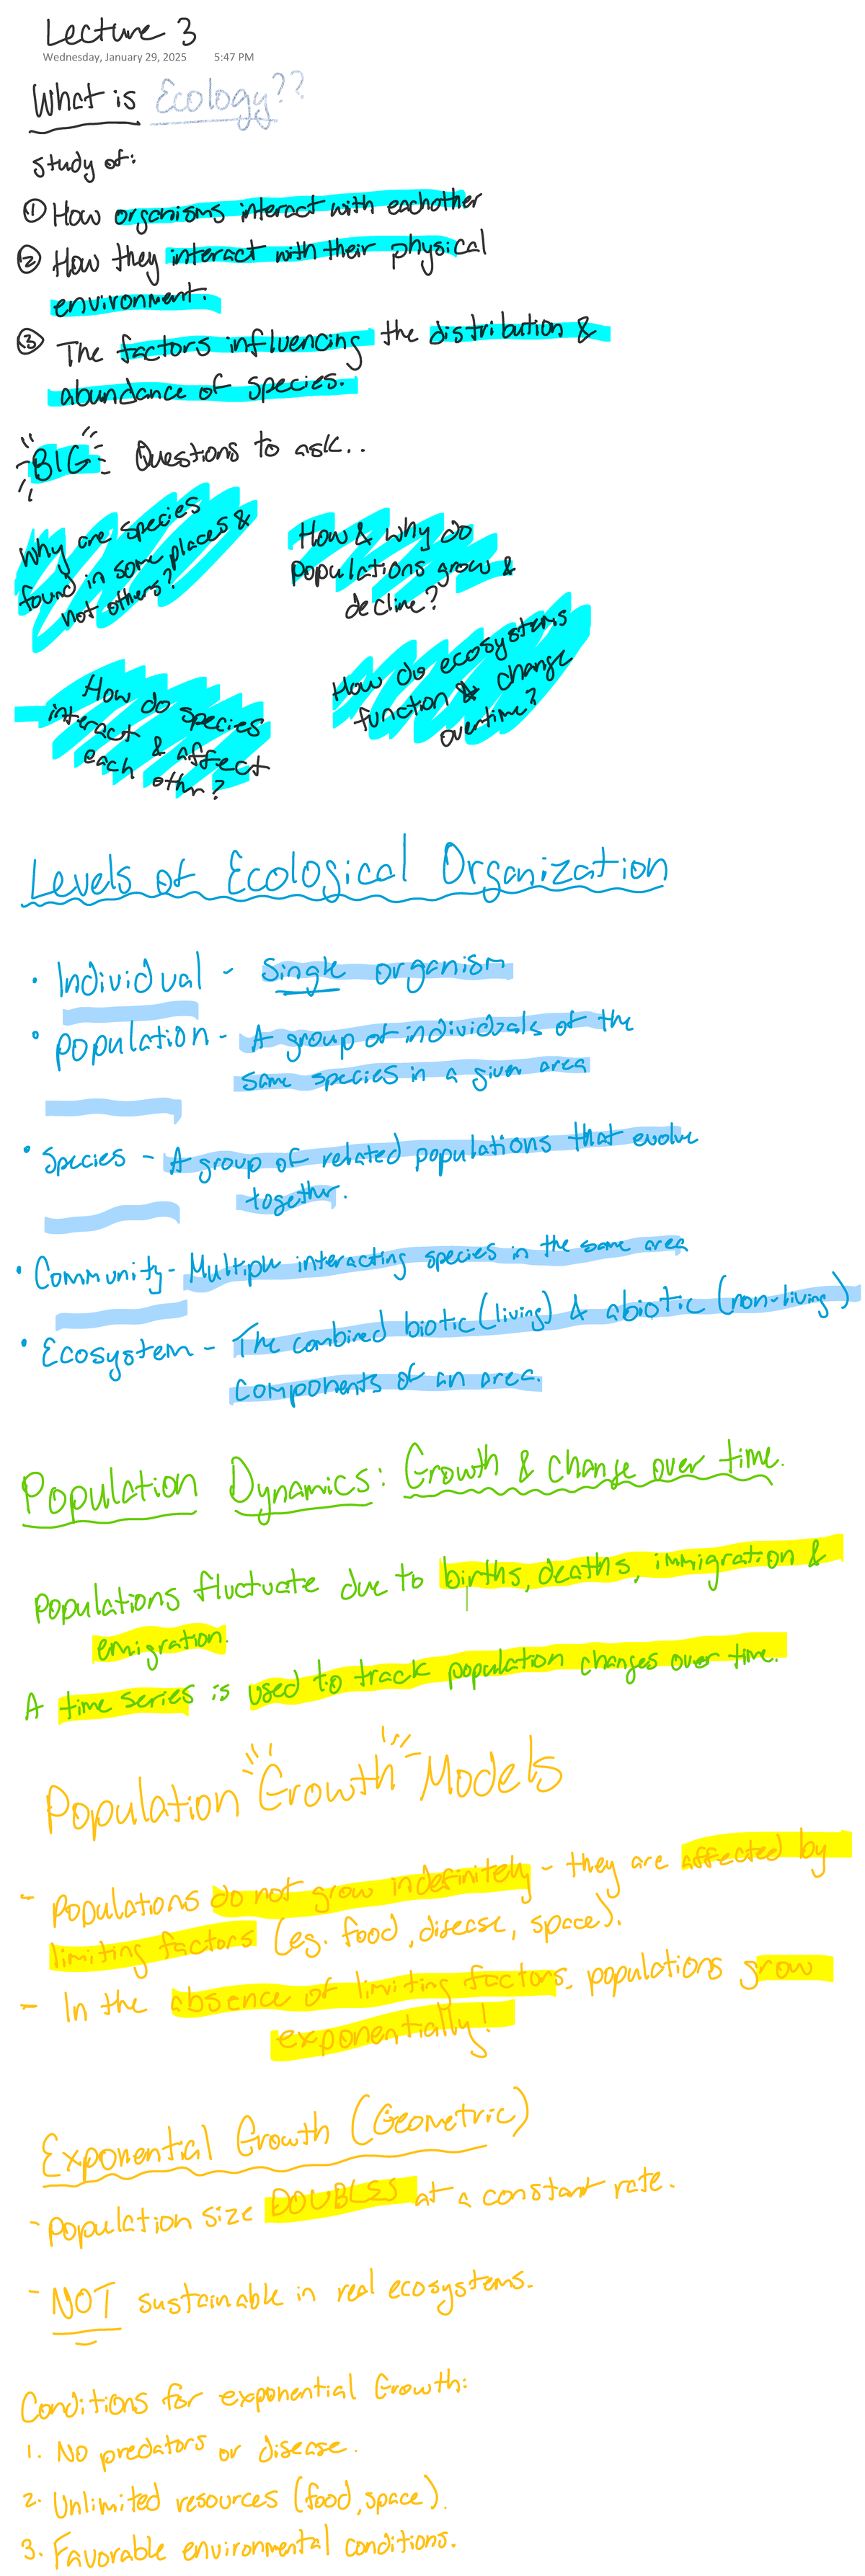 Lecture 3
Wednesday, January 29, 2025 5:47 PM
What is Ecology??
Study of:
① How organisms interact with eachother
② How they interact with their physical
environment.
③ The factors influencing the distribution &
abundance of species.
BIG Questions to ask..
Why are species
found in some places &
not others?
How & why do
populations grow &
decline?
How do species
interact & affect
each othr?
How do ecosystems
function & change
overtime?
Levels of Ecological Organization
• Individual - Single organism
• Population - A group of individals of the
same species in a given area
• Species - A group of related populations that evolve
together.
• Community - Multiple interacting species in the same area
• Ecosystem - The combined biotic (living) & abiotic (non-living)
components of an area.
Population Dynamics: Growth & change over time.
Populations fluctuate due to births, deaths, immigration &
emigration.
A time series is used to track population changes over time.
Population Growth Models
- Populations do not grow indefinitely - they are affected by
limiting factors (eg. food, disease, space).
- In the absence of limiting factors, populations grow
exponentially!
Exponential Growth (Geometric)
- Population size DOUBLES at a constant rate.
- NOT sustainable in real ecosystems.
Conditions for exponential Growth:
1. No predators or disease.
2. Unlimited resources (food, space).
3. Favorable environmental conditions.